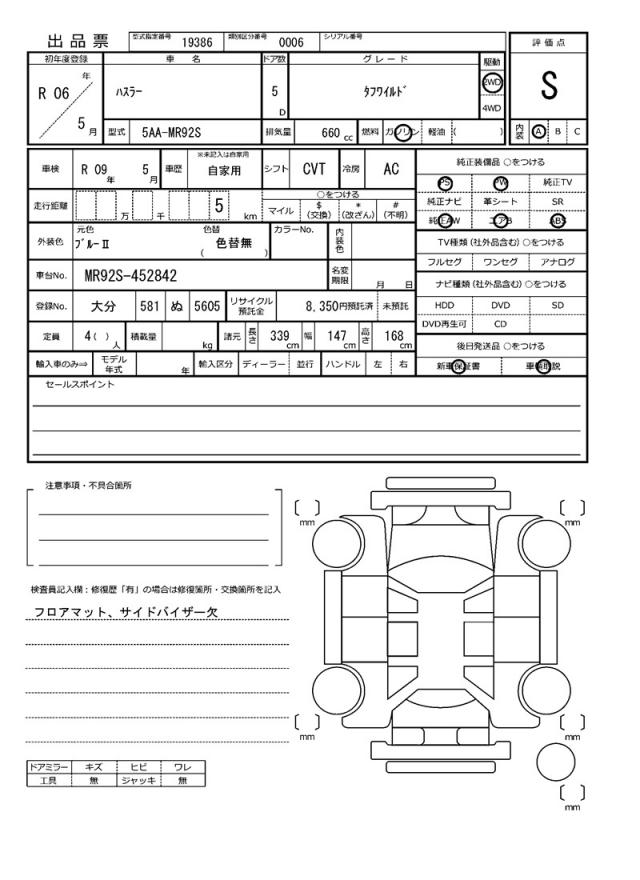 出品票 型式指定番号 19386 類別区分番号 0006 シリアル番号
評価点
S
内装 A B C
初年度登録 車名 ドア数 グレード 駆動
R 06 年 5 月 ハスラー 5 D タフワイルド 2WD 4WD
型式 5AA-MR92S 排気量 660 cc 燃料 ガソリン 軽油 ( )
車検 R 09 年 5 月 車歴 ※未記入は自家用 自家用 シフト CVT 冷房 AC
走行距離 万 千 5 km ○をつける
マイル $(交換) *(改ざん) #(不明)
外装色 元色 ブルーⅡ 色替 色替無 ( ) カラーNo. 内装色
車台No. MR92S-452842 名変期限 月 日
登録No. 大分 581 ぬ 5605 リサイクル預託金 8,350円預託済 未預託
定員 4( ) 人 積載量 kg 諸元 長さ 339 cm 幅 147 cm 高さ 168 cm
輸入車のみ⇒ モデル年式 年 輸入区分 ディーラー 並行 ハンドル 左 右
純正装備品 ○をつける
PS PW 純正TV
純正ナビ 革シート SR
純正AW エアB ABS
TV種類 (社外品含む) ○をつける
フルセグ ワンセグ アナログ
ナビ種類 (社外品含む) ○をつける
HDD DVD SD
DVD再生可 CD
後日発送品 ○をつける
新車保証書 車輌取説
セールスポイント
注意事項・不具合箇所
検査員記入欄：修復歴「有」の場合は修復箇所・交換箇所を記入
フロアマット、サイドバイザー欠
ドアミラー キズ ヒビ ワレ
工具 無 ジャッキ 無
mm
mm
mm
mm
mm